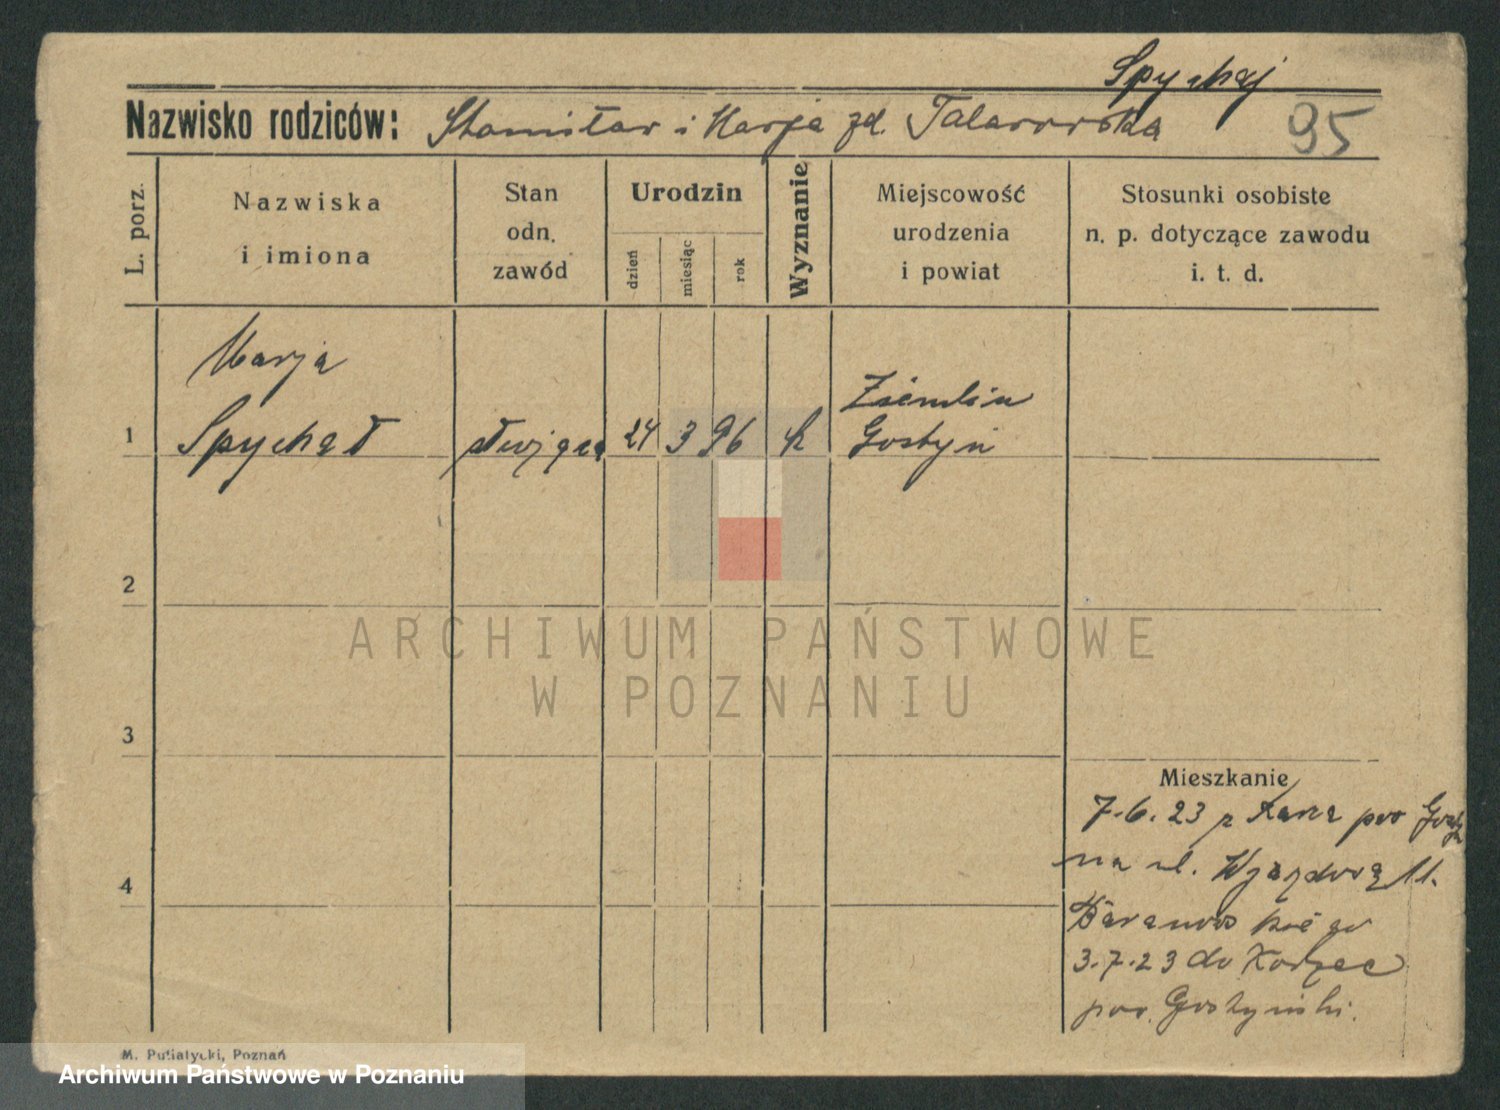 Spychaj
Nazwisko rodziców: Stanisław i Marja zd. Talarowska
95
L. porz.
Nazwiska
i imiona
Stan
odn.
zawód
Urodzin
dzień
miesiąc
rok
Wyznanie
Miejscowość
urodzenia
i powiat
Stosunki osobiste
n. p. dotyczące zawodu
i. t. d.
Marja
1 Spychał służąca 24 3 96 k Ziemlin
Gostyń
2
3
4
Mieszkanie
7.6.23 z pow Gost
na ul. Wjazdową 11.
3.7.23 do
pow. Gostyński.
ARCHIWUM PAŃSTWOWE
W POZNANIU
M. Putiatycki, Poznań
Archiwum Państwowe w Poznaniu